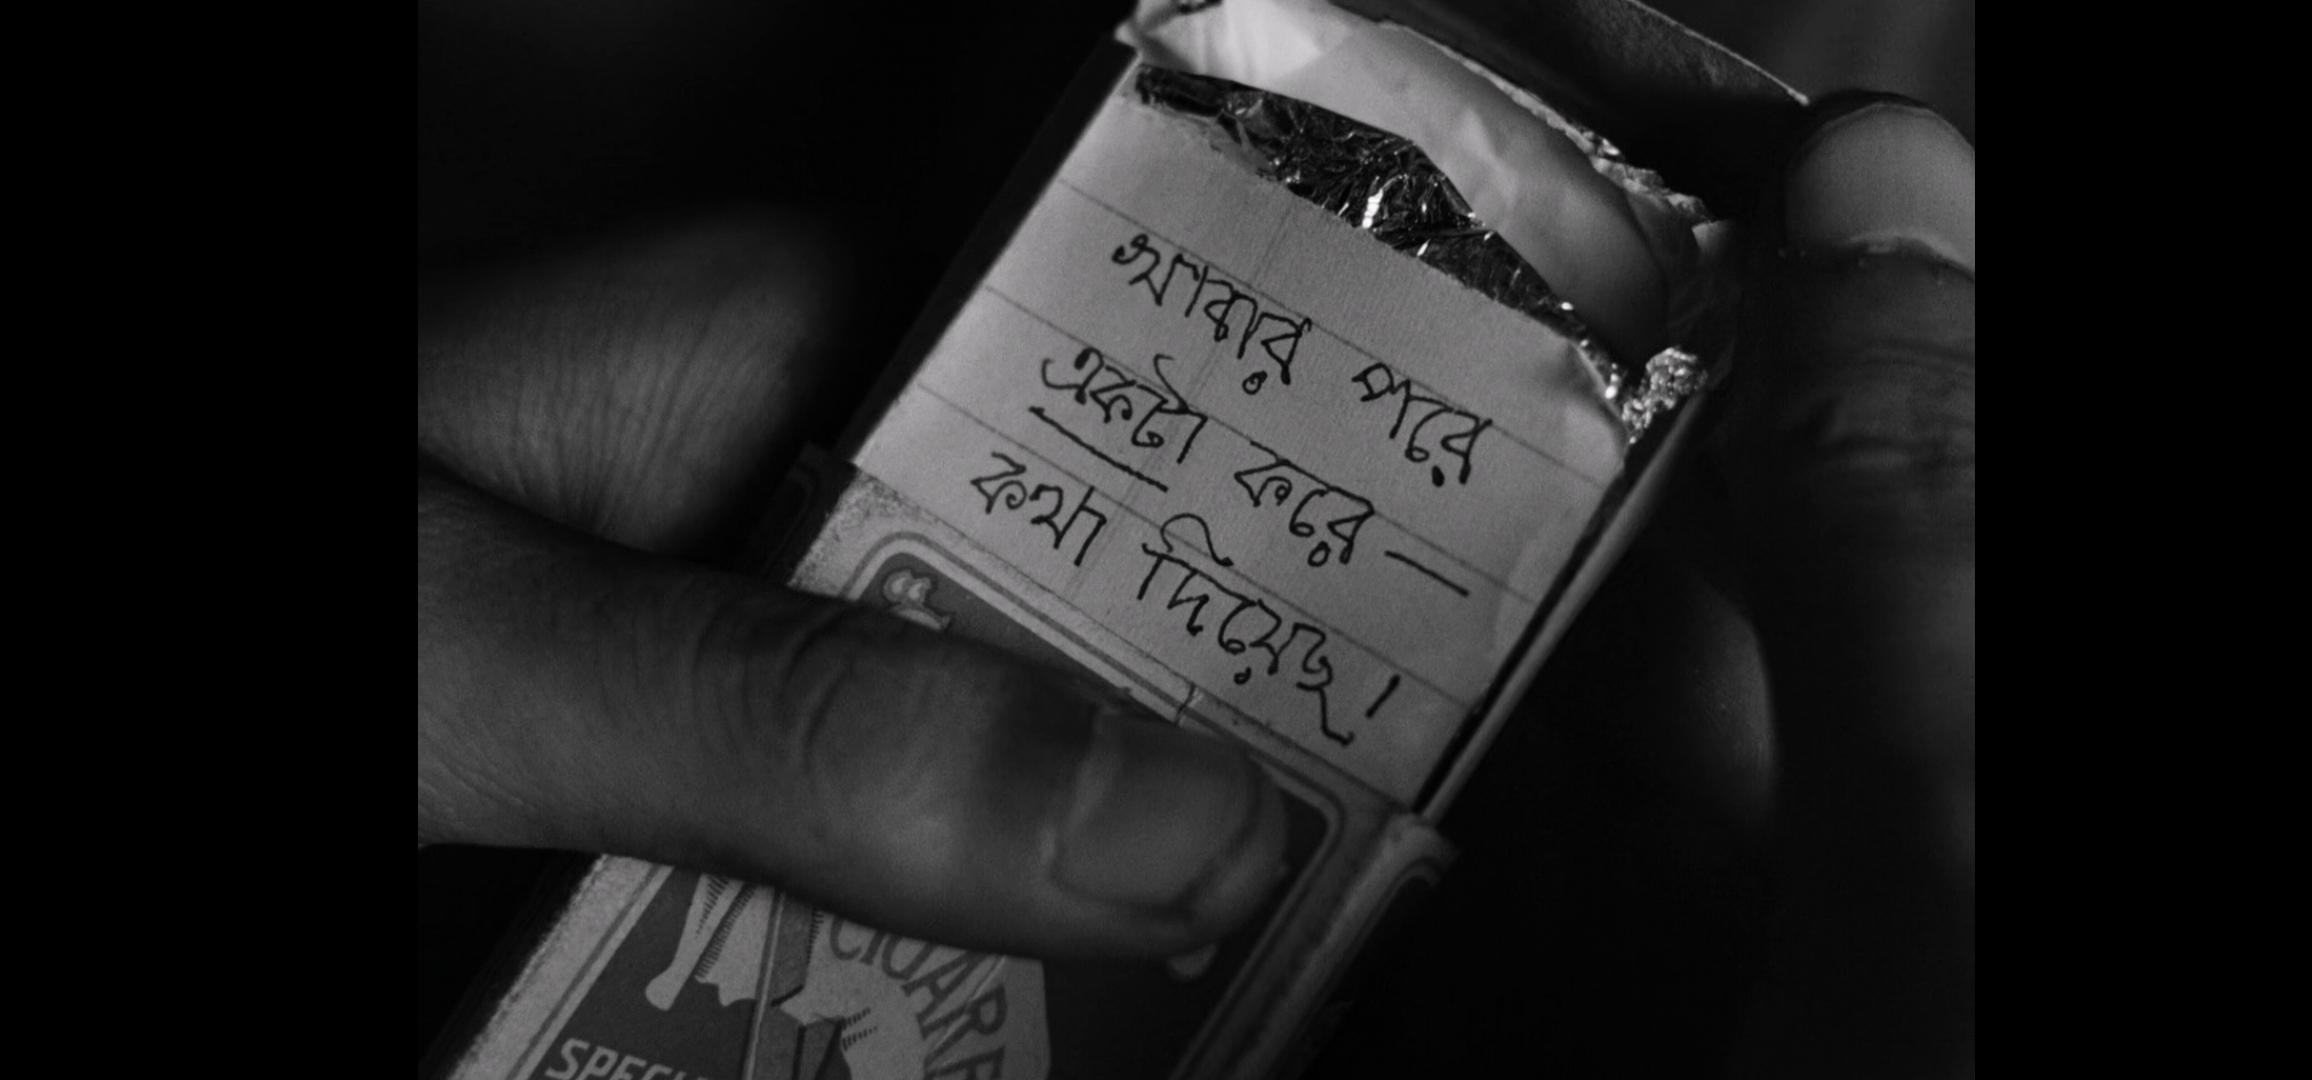 খাবার পরে
একটা করে —
কথা দিয়েছ।
CIGARE
SPECI